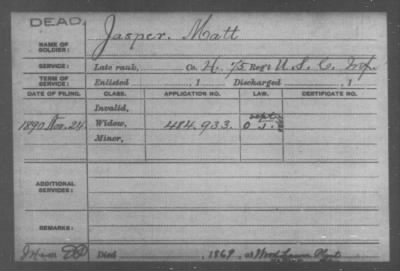 DEAD.
NAME OF SOLDIER: Jasper. Matt
SERVICE: Late rank, Co. H. 75 Reg't U.S.C. Inf.
TERM OF SERVICE: Enlisted , 1 Discharged , 1
DATE OF FILING. CLASS. APPLICATION NO. LAW. CERTIFICATE NO.
Invalid,
1890 Nov. 24 Widow, 484.933.
Minor,
ADDITIONAL SERVICES:
REMARKS:
Died , 1869, at